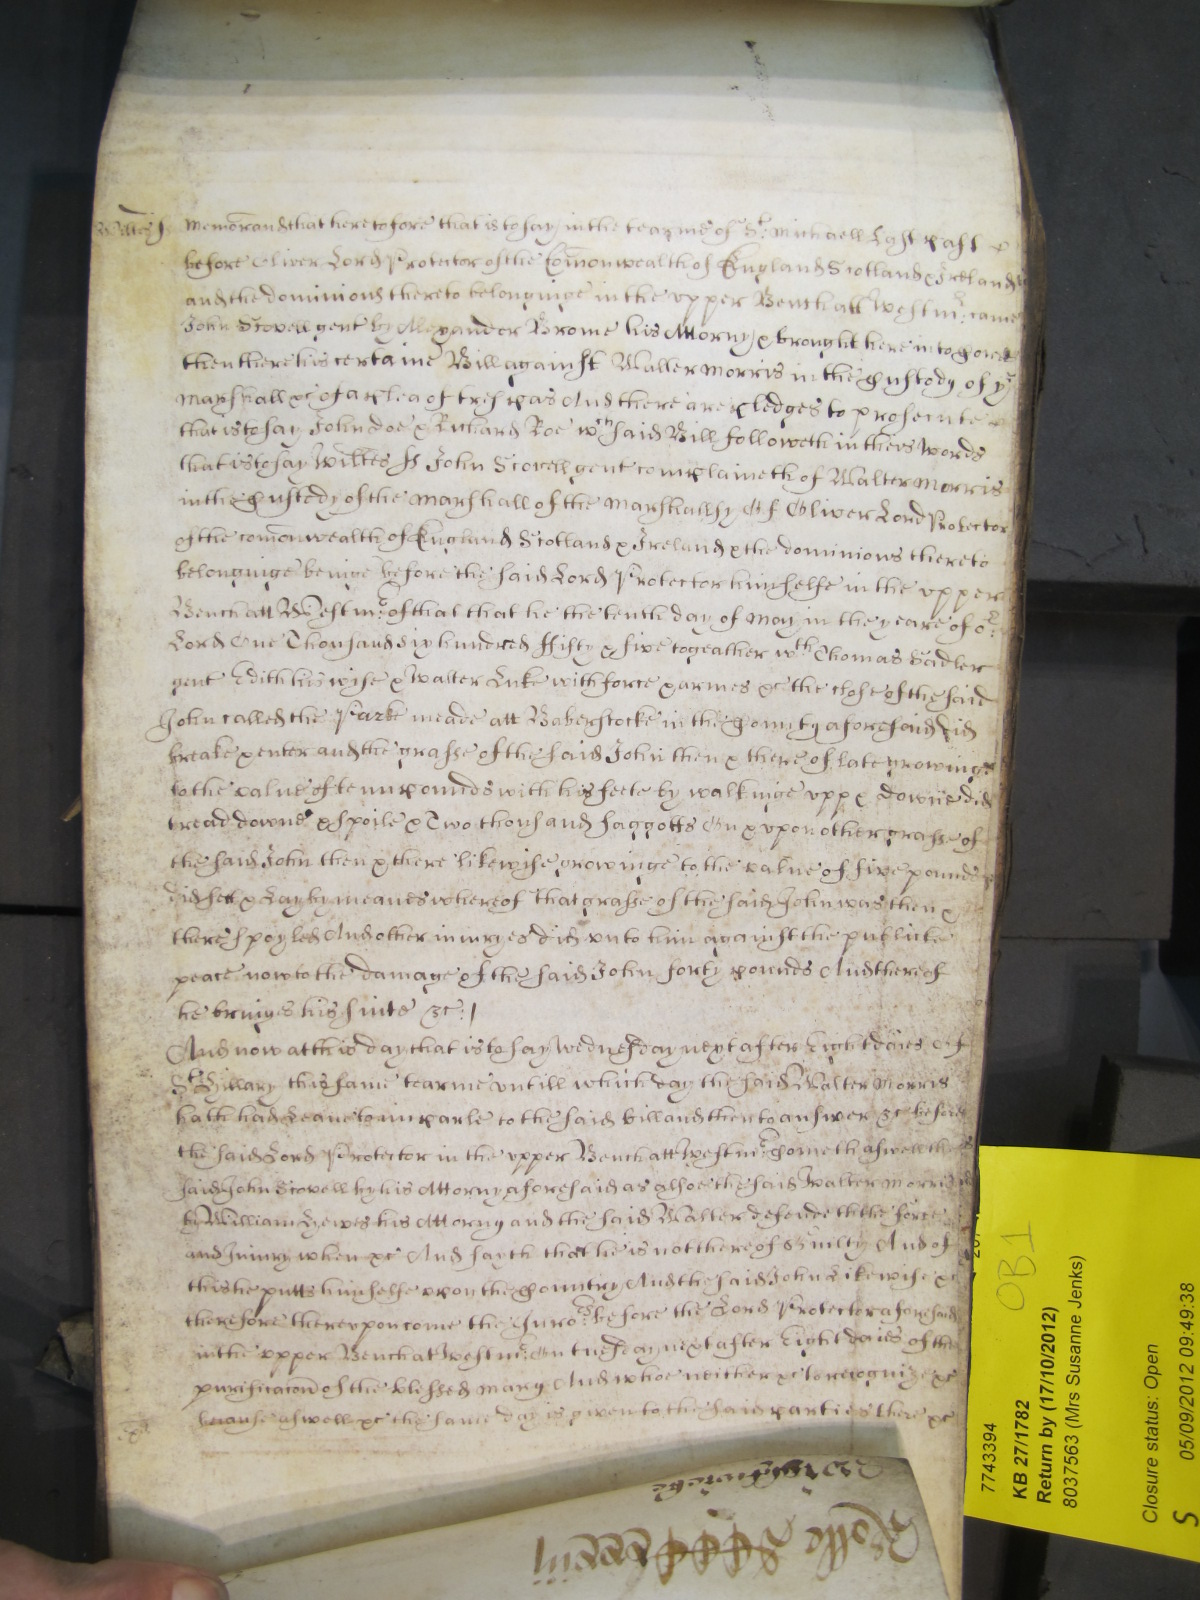 Wiltes ss Memorand that heretofore that is to say in the tearme of St Michaell Last past
before Oliver Lord Protector of the Com̄onwealth of England Scotland & Ireland
and the dominions thereto belonginge in the upper Bench att Westmr: came
John Scovell gent by Alexander Brome his Attorny & brought here into Court
then there his certaine Bill against Walter Morris in the Custody of ye
Marshall &c of a plea of trespas And there are pledges to prosecute
that is to say John doe & Richard Roe wch said Bill followeth in theis words
that is to say Wiltes ss John Scovell gent complaineth of Walter Morris
in the Custody of the Marshall of the Marshallsy Of Oliver Lord Protector
of the com̄onwealth of England Scotland & Ireland & the dominions thereto
belonginge beinge before the said Lord Protector himselfe in the upper
Bench att Westmr: of that that he the tenth day of May in the yeare of or:
Lord One Thousand six hundred ffifty & five togeather wth Thomas
gent Edith his wife & Walter Luke with force & armes &c the close of the said
John called the Parke meade att Baberstocke in the County aforesaid did
breake & enter and the grasse of the said John then & there of late growinge
to the value of tenn pounds with his feete by walkinge upp & downe did
tread downe & spoile & Two thousand faggotts On & upon other grasse of
the said John then & there likewise growinge to the value of five pounds
did sett & Lay by meanes whereof that grasse of the said John was then &
there spoyled And other iniuryes did unto him against the publicke
peace now to the damage of the said John forty pounds And thereof
he bringes his suite &c: /
And now att this day that is to say Wednesday next after Eight daies Of
St Hillary this same tearme untill which day the said Walter Morris
hath had Leave to imparle to the said bill and then to answer &c before
the said Lord Protector in the upper Bench att Westmr: Cometh aswell the
said John Scovell by his Attorny aforesaid as alsoe the said Walter Morris
by William Hewes his Attorny and the said Walter defendeth the force
and Iniury when &c And sayth that he is not thereof Guilty And of
this he putts himselfe upon the Country And the said John Likewise &c
therefore thereupon come the Jurors before the Lord Protector aforesaid
in the upper Bench at Westmr: On tuesday next after Eight daies of the
purificac̄on of the blessed Mary And whoe neither &c to recognize &c
because aswell &c the same day is given to the said parties there &c
Rolle
7743394
OB1
KB 27/1782
Return by (17/10/2012)
8037563 (Mrs Susanne Jenks)
Closure status: Open
05/09/2012 09:49:38
S